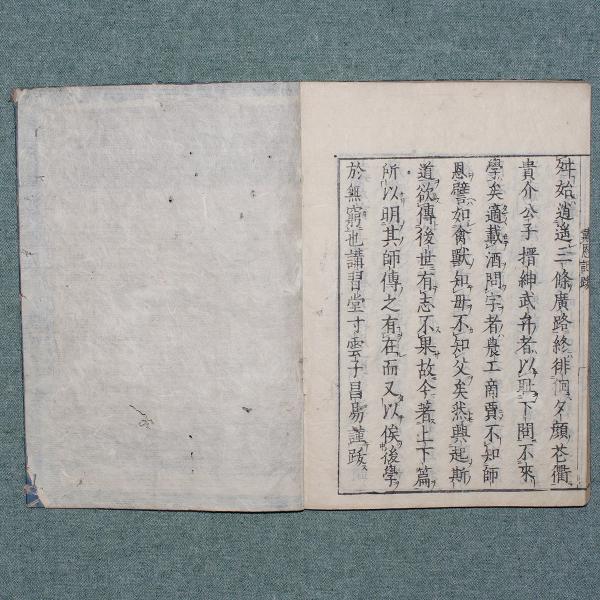 舛始逍遥三條廣路終徘徊夕顔巷衢
貴介公子搢紳武弁者以耻下問不來
學矣適載酒問字者農工商賈不知師
恩譬如禽獸知母不知父矣然興起斯
道欲傳後世有志不果故今著上下篇
所以明其師傳之有在而又以俟後學
於無窮也講習堂寸雲子昌易謹跋